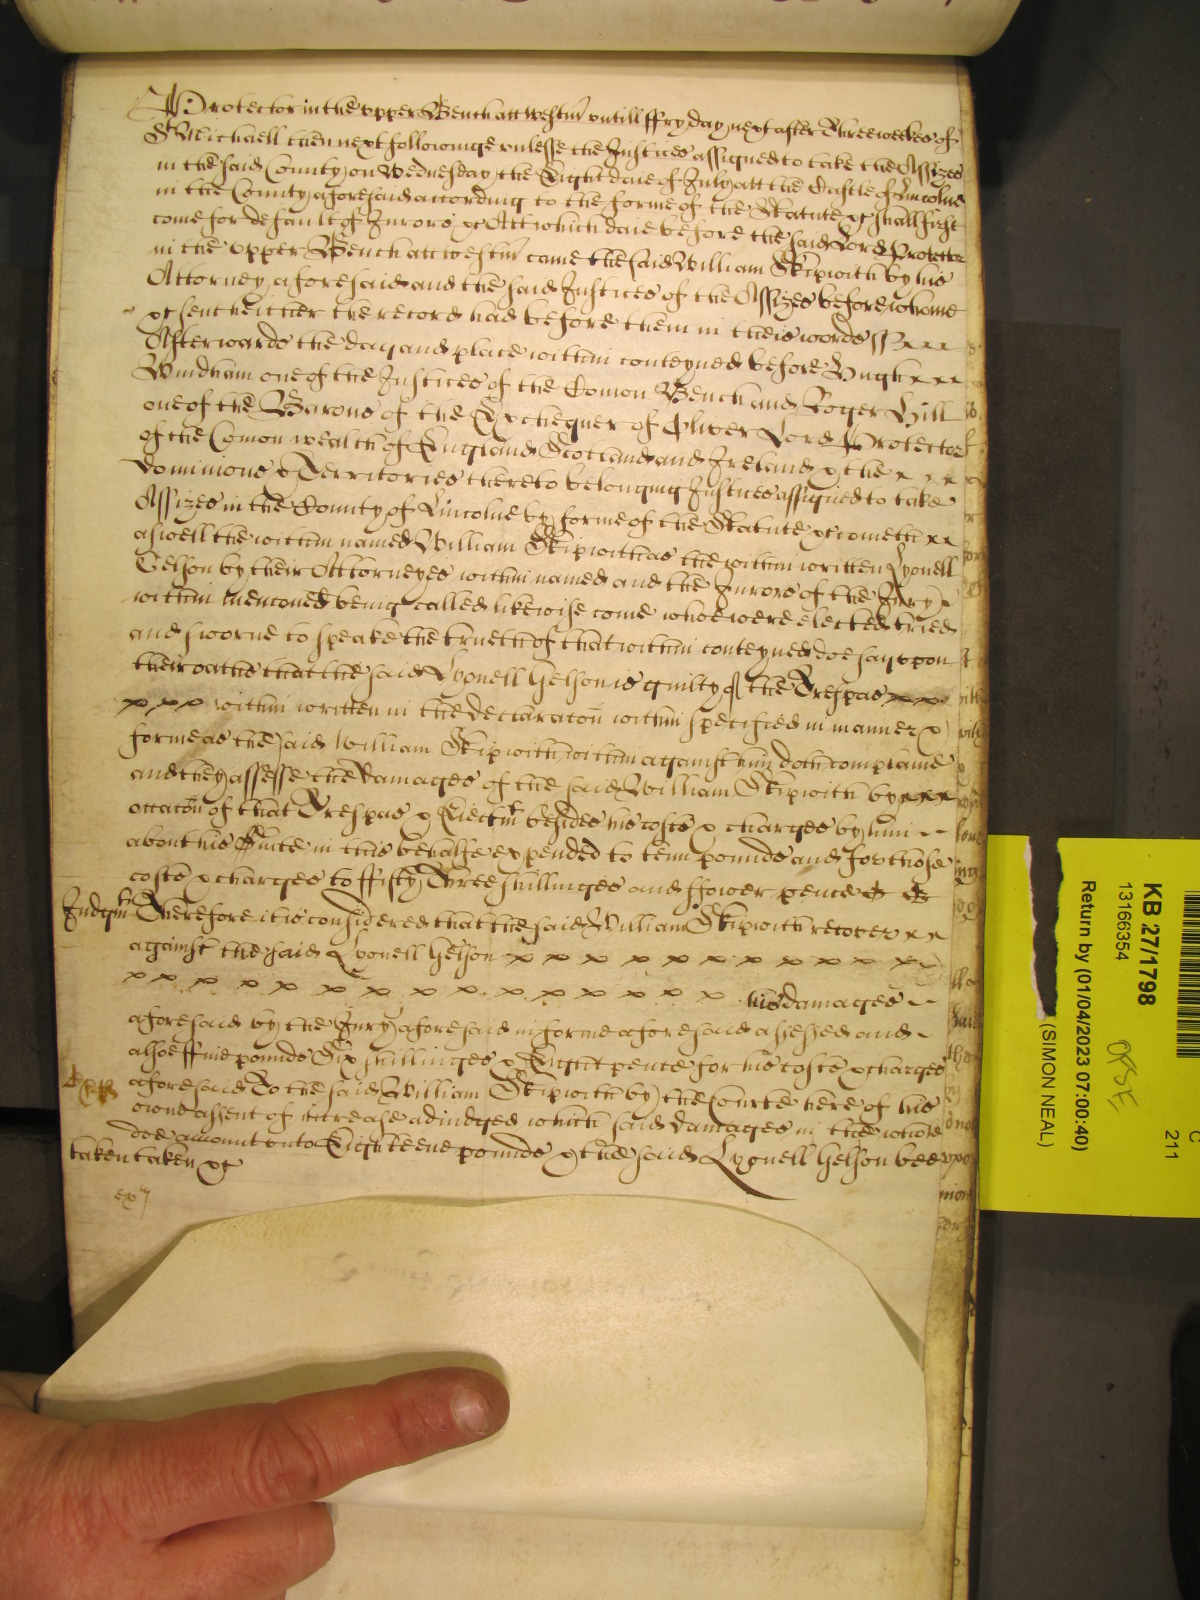 Protector in the upper Bench att westmr untill ffryday next after Three weekes of
St Michaell then next followinge unlesse the Justices assigned to take the Assizes
in the said County on Wednesday the Eight daie of July att the Castle of Lincolne
in the County aforesaid according to the forme of the Statute &c shall first
come for default of Jurors &c Att which daie before the said Lord Protector
in the upper Bench att westmr came the said William Skipwith by his
Attorney aforesaid and the said Justices of the Assizes before whome
&c sent hither the record had before them in theis words ss
Afterwards the day and place within conteyned before Hugh
Windham one of the Justices of the Comon Bench and Roger Hill
one of the Barons of the Exchequer of Oliver Lord Protector
of the Comon wealth of England Scotland and Ireland & the
Dominions & Territories thereto belonging Justices assigned to take
Assizes in the County of Lincolne by forme of the Statute &c cometh
aswell the within named William Skipwith as the within written Lyonell
Gelson by their Attorneyes within named and the Jurors of the Jury
within menconed being called likewise come whoe were elected tried
and sworne to speake the trueth of that within conteyned doe say upon
their oathe that the said Lyonell Gelson is guilty of the Trespas
within written in the declaracon within specified in manner &
forme as the said William Skipwith within against him doth complaine
and they assesse the damages of the said William Skipwith by
occacon of that Trespas & Eiectmt besides his costs & charges by him
about his Suite in this behalfe expended to tenn pounds and for those
costs & charges to ffifty Three shillinges and ffower pence
Judgmt Therefore it is considered that the said William Skipwith recover
against the said Lyonell Gelson
his damages
aforesaid by the Jury aforesaid in forme aforesaid assessed and
alsoe ffive pounds Six shillinges & Eight pence for his costs & charges
aforesaid To the said William Skipwith by the Courte here of his
owne assent of increase adiudged which said damages in the whole
doe amount unto Eighteene pounds & the said Lyonell Gelson bee
taken taken &c
exr
KB 27/1798
13166354
Return by (01/04/2023 07:00:40)
(SIMON NEAL)
211